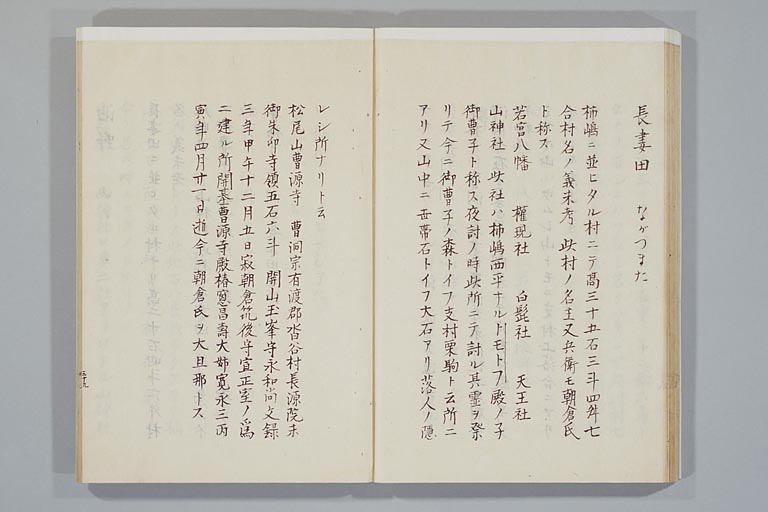 長妻田　ながつまた
柿嶋ニ並ヒタル村ニテ高三十五石三斗四舛七
合村名ノ義未考　此村ノ名主又兵衛モ朝倉氏
ト称ス
若宮八幡　権現社　白髭社　天王社
山神社　此社ハ柿嶋西平ナルトモトフ殿ノ子
御曹子ト称ス夜討ノ時此所ニテ討ル其霊ヲ祭
リテ今ニ御曹子ノ森トイフ支村栗駒ト云所ニ
アリ又山中ニ世帯石トイフ大石アリ落人ノ隠
レシ所ナリト云
松尾山曹源寺　曹洞宗有渡郡沓谷村長源院末
御朱印寺領五石六斗　開山玉峯守永和尚文録
三年甲午十二月五日寂朝倉筑後守宣正室ノ為
ニ建ル所開基曹源寺殿椿窓昌壽大姉寛永三丙
寅年四月廿一日逝今ニ朝倉氏ヲ大旦那トス